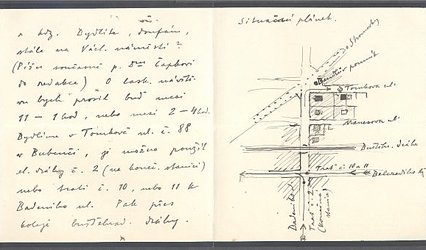 a kdy. Bydlíte, doufám,
stále na Václ. náměstí?
(Píšu současně p.
do redakce) O lask. návštěvu
bych prosil buď mezi
11 – 1 hod, nebo mezi 2 – 4 hod.
Bydlíme v Trnkově ul. č. 88
v Bubenči, je možno použít
el. dráhy č. 2 (na konc. stanici)
nebo trati č. 10, nebo 11 k
Badeniho ul. Pak přes
koleje buštěhrad. dráhy.
Situační plánek.
Stromovky
Trnkova ul.
Manesova ul.
Buštěhr. dráha
Trať č. 10 a 11
Trať č. 2